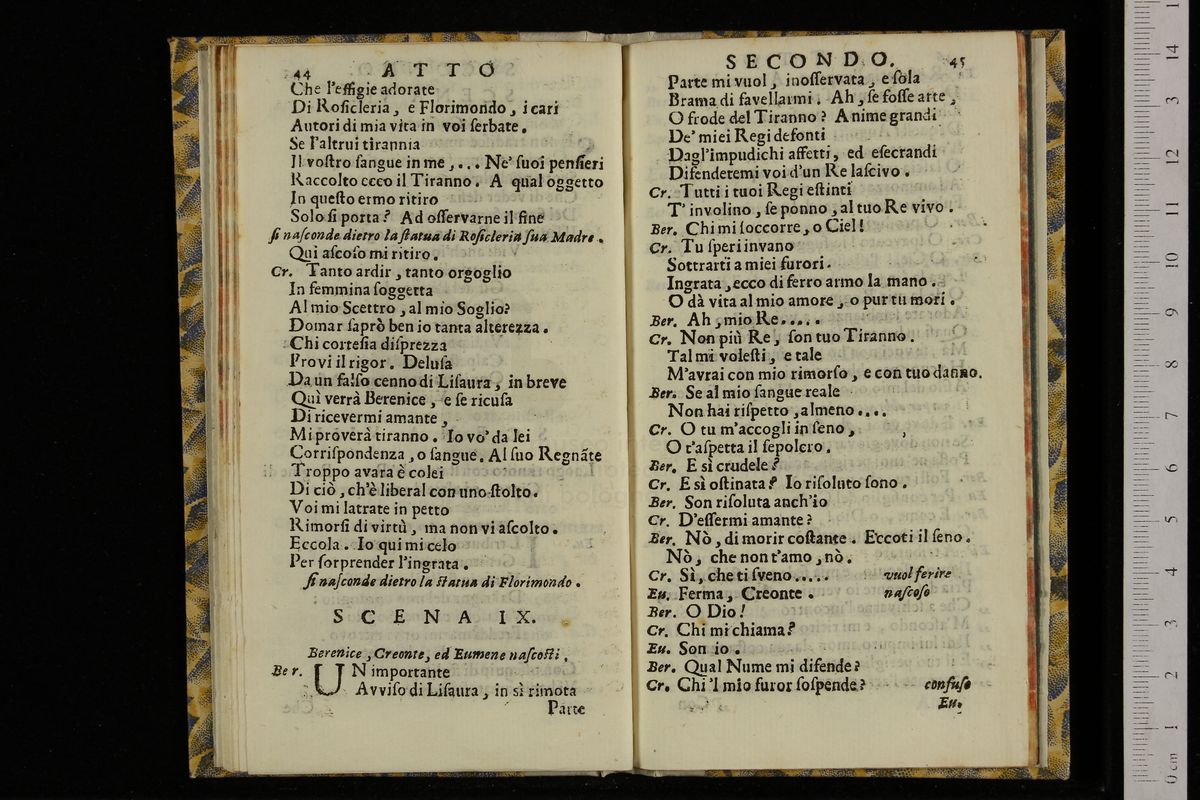 44 ATTO
Che l'effigie adorate
Di Roſicleria, e Florimondo, i cari
Autori di mia vita in voi ſerbate.
Se l'altrui tirannia
Il voſtro ſangue in me,... Ne' ſuoi penſieri
Raccolto ecco il Tiranno. A qual oggetto
In queſto ermo ritiro
Solo ſi porta? Ad oſſervarne il fine
ſi naſconde dietro la ſtatua di Roſicleria ſua Madre.
Qui aſcoſo mi ritiro.
Cr. Tanto ardir, tanto orgoglio
In femmina ſoggetta
Al mio Scettro, al mio Soglio?
Domar ſaprò ben io tanta alterezza.
Chi corteſia diſprezza
Provi il rigor. Deluſa
Da un falſo cenno di Liſaura, in breve
Quì verrà Berenice, e ſe ricuſa
Di ricevermi amante,
Mi proverà tiranno. Io vo' da lei
Corriſpondenza, o ſangue. Al ſuo Regnãte
Troppo avara è colei
Di ciò, ch'è liberal con uno ſtolto.
Voi mi latrate in petto
Rimorſi di virtù, ma non vi aſcolto.
Eccola. Io qui mi celo
Per ſorprender l'ingrata.
ſi naſconde dietro la ſtatua di Florimondo.
SCENA IX.
Berenice, Creonte, ed Eumene naſcoſti,
Ber. UN importante
Avviſo di Liſaura, in sì rimota
Parte
SECONDO. 45
Parte mi vuol, inoſſervata, e ſola
Brama di favellarmi. Ah, ſe foſſe arte,
O frode del Tiranno? Anime grandi
De' miei Regi defonti
Dagl'impudichi affetti, ed eſecrandi
Difendetemi voi d'un Re laſcivo.
Cr. Tutti i tuoi Regi eſtinti
T' involino, ſe ponno, al tuo Re vivo.
Ber. Chi mi ſoccorre, o Ciel!
Cr. Tu ſperi invano
Sottrarti a miei furori.
Ingrata, ecco di ferro armo la mano.
O dà vita al mio amore, o pur tu mori.
Ber. Ah, mio Re.....
Cr. Non più Re, ſon tuo Tiranno.
Tal mi voleſti, e tale
M'avrai con mio rimorſo, e con tuo danno.
Ber. Se al mio ſangue reale
Non hai riſpetto, almeno....
Cr. O tu m'accogli in ſeno,
O t'aſpetta il ſepolcro.
Ber. E sì crudele?
Cr. E sì oſtinata? Io riſoluto ſono.
Ber. Son riſoluta anch'io
Cr. D'eſſermi amante?
Ber. Nò, di morir coſtante. Eccoti il ſeno.
Nò, che non t'amo, nò.
Cr. Sì, che ti ſveno..... vuol ferire
Eu. Ferma, Creonte. naſcoſo
Ber. O Dio!
Cr. Chi mi chiama?
Eu. Son io.
Ber. Qual Nume mi difende?
Cr. Chi 'l mio furor ſoſpende? confuſo
Eu.
0 cm 1 2 3 4 5 6 7 8 9 10 11 12 13 14